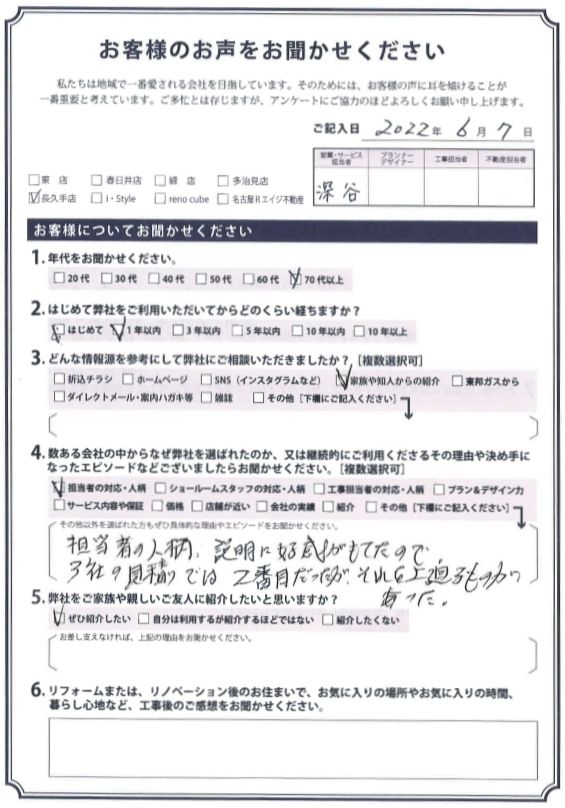 お客様のお声をお聞かせください
私たちは地域で一番愛される会社を目指しています。そのためには、お客様の声に耳を傾けることが
一番重要と考えています。ご多忙とは存じますが、アンケートにご協力のほどよろしくお願い申し上げます。
ご記入日 2022年 6月 7日
営業・サービス担当者 プランナーデザイナー 工事担当者 不動産担当者
深谷
□東 店 □春日井店 □緑 店 □多治見店
☑長久手店 □i・Style □reno cube □名古屋Rエイジ不動産
お客様についてお聞かせください
1.年代をお聞かせください。
□20代 □30代 □40代 □50代 □60代 ☑70代以上
2.はじめて弊社をご利用いただいてからどのくらい経ちますか?
☑はじめて ☑1年以内 □3年以内 □5年以内 □10年以内 □10年以上
3.どんな情報源を参考にして弊社にご相談いただきましたか?[複数選択可]
□折込チラシ □ホームページ □SNS(インスタグラムなど) ☑家族や知人からの紹介 □東邦ガスから
□ダイレクトメール・案内ハガキ等 □雑誌 □その他[下欄にご記入ください]
4.数ある会社の中からなぜ弊社を選ばれたのか、又は継続的にご利用くださるその理由や決め手に
なったエピソードなどございましたらお聞かせください。[複数選択可]
☑担当者の対応・人柄 □ショールームスタッフの対応・人柄 □工事担当者の対応・人柄 □プラン&デザイン力
□サービス内容や保証 □価格 □店舗が近い □会社の実績 □紹介 □その他[下欄にご記入ください]
その他以外を選ばれた方もぜひ具体的な理由やエピソードをお聞かせください。
担当者の人柄、説明に好感がもてたので
3社の見積りでは 2番目だったが、それを上廻るものが
あった。
5.弊社をご家族や親しいご友人に紹介したいと思いますか?
☑ぜひ紹介したい □自分は利用するが紹介するほどではない □紹介したくない
お差し支えなければ、上記の理由をお聞かせください。
6.リフォームまたは、リノベーション後のお住まいで、お気に入りの場所やお気に入りの時間、
暮らし心地など、工事後のご感想をお聞かせください。